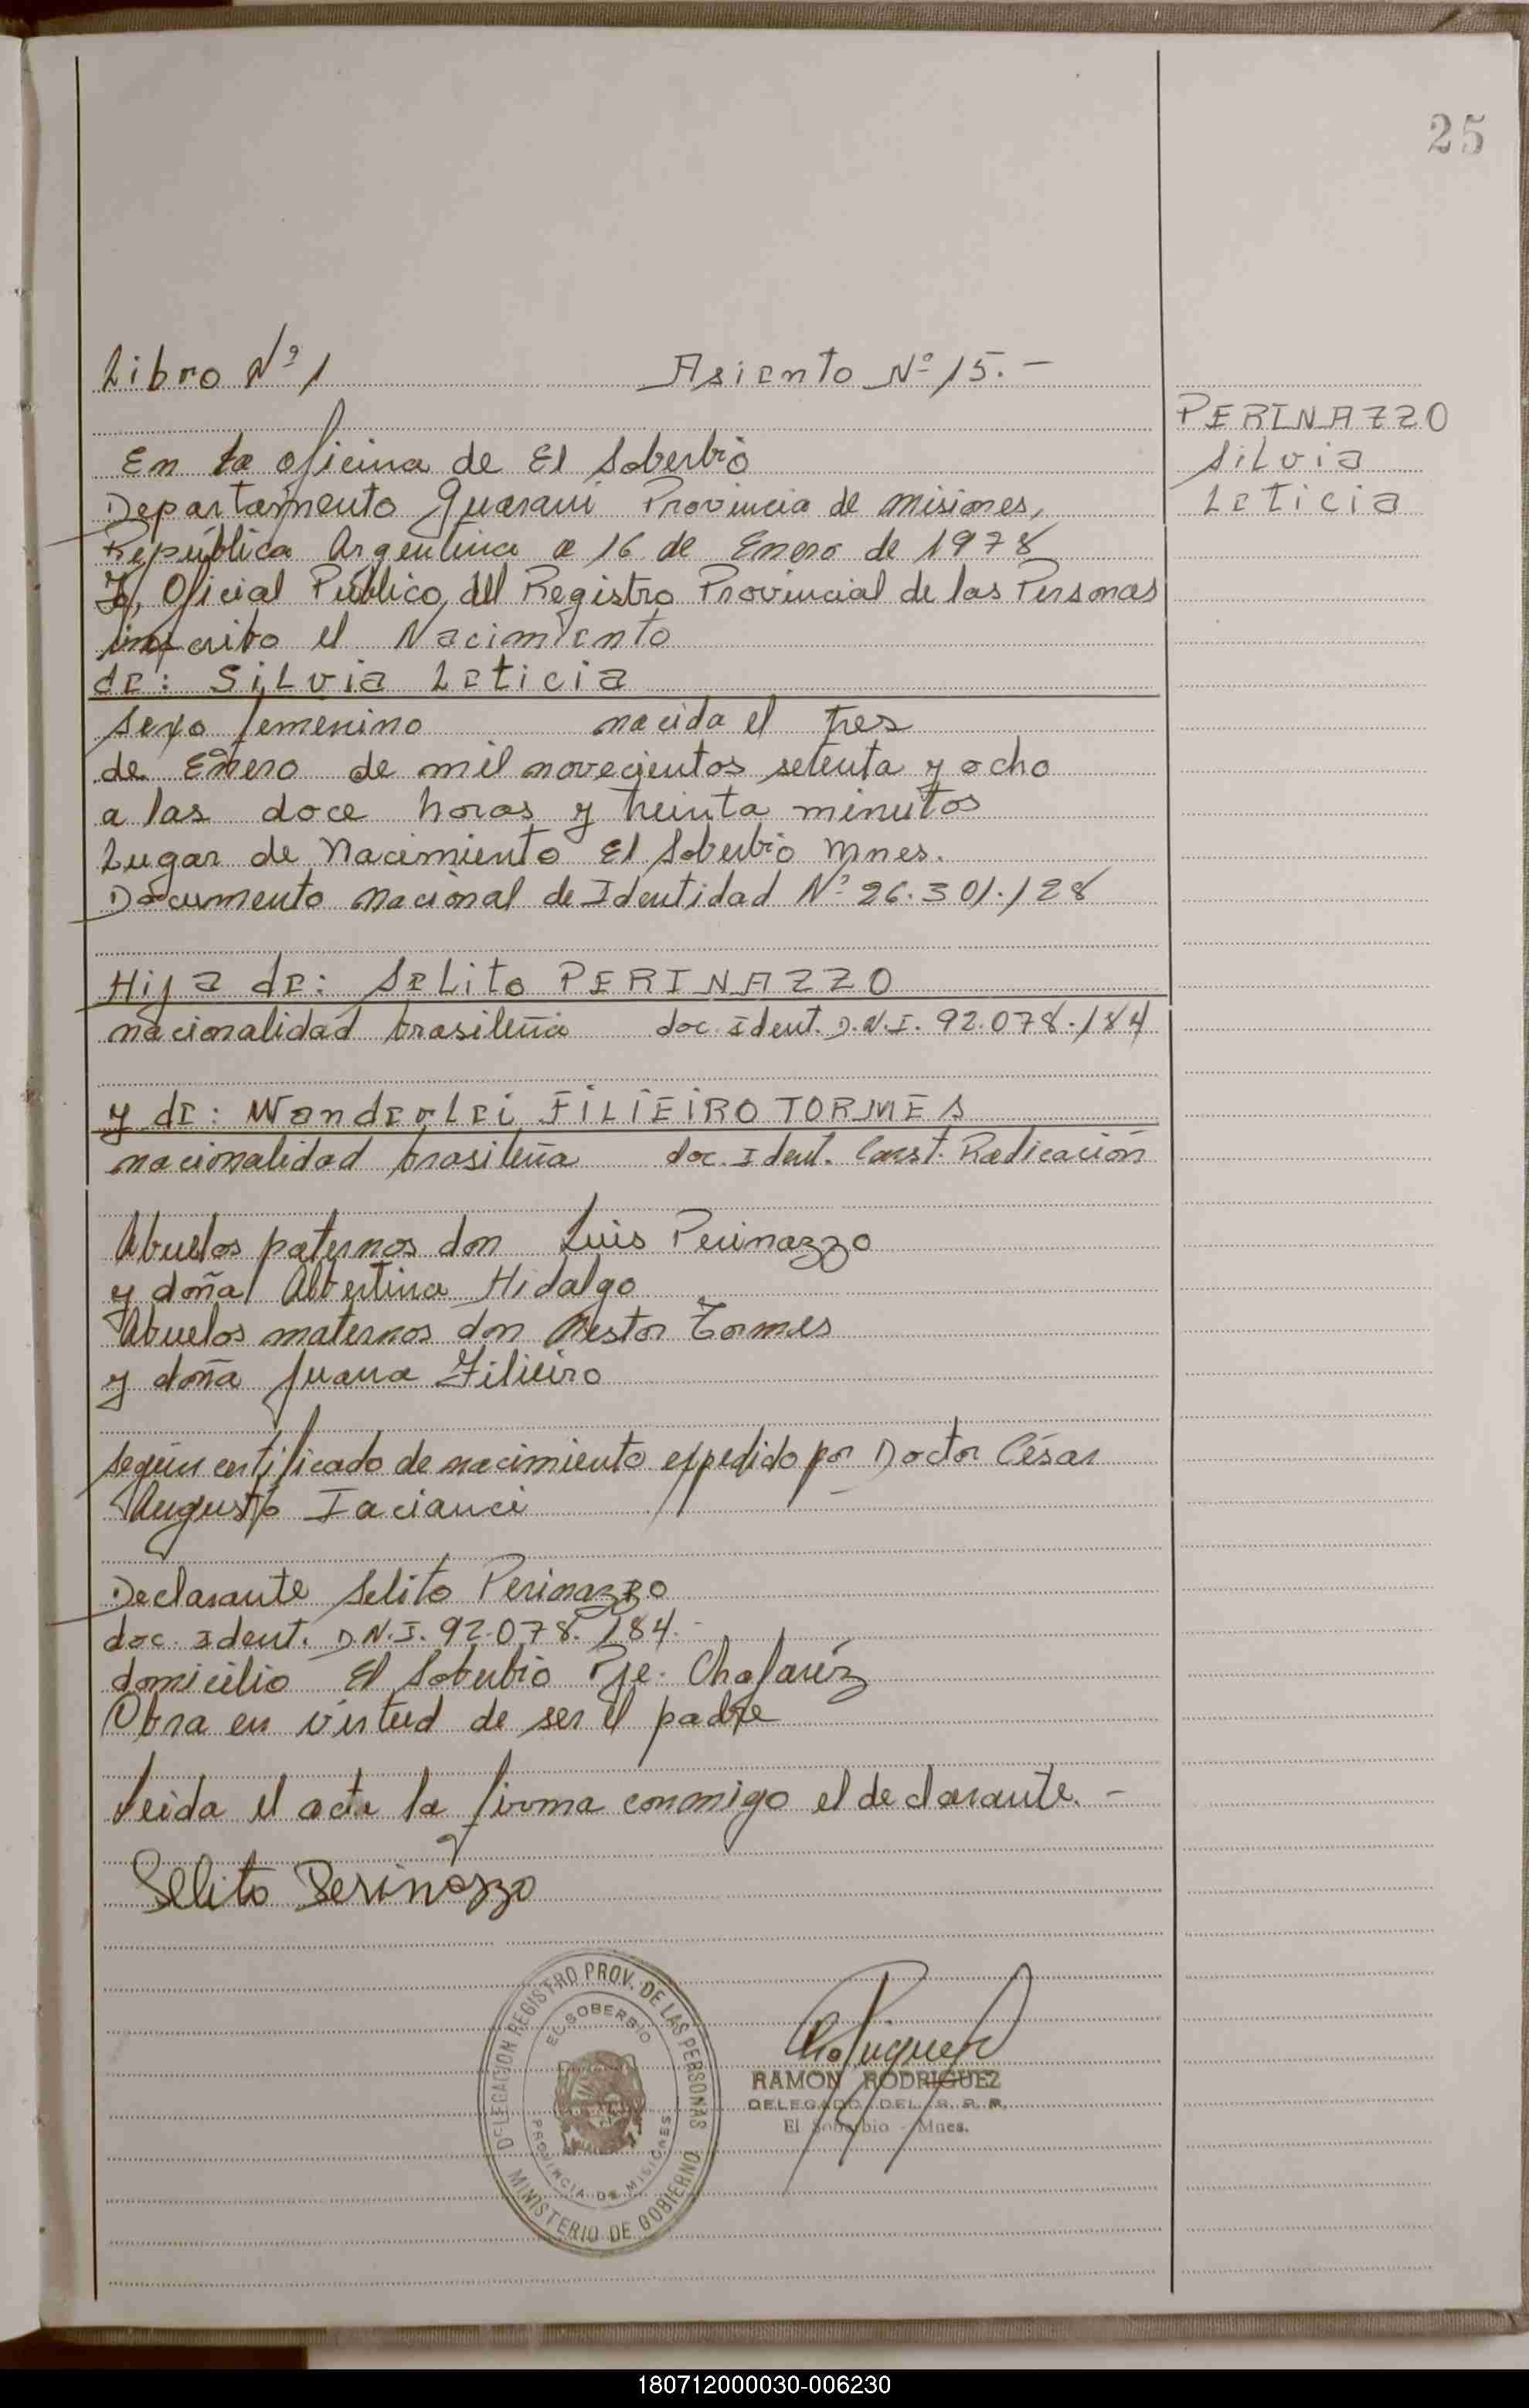 25
Libro Nº 1 Asiento Nº 15. -
PERINAZZO
Silvia
Leticia
En la oficina de El Soberbio
Departamento Guarani Provincia de Misiones,
República Argentina a 16 de Enero de 1978
Yo, Oficial Público, del Registro Provincial de las Personas
inscribo el Nacimiento
de: Silvia Leticia
Sexo femenino nacida el tres
de Enero de mil novecientos setenta y ocho
a las doce horas y treinta minutos
Lugar de Nacimiento El Soberbio Mnes.
Documento Nacional de Identidad Nº 26.301.128
Hija de: Selito PERINAZZO
nacionalidad brasileña doc. Ident. D.N.I. 92.078.184
y de: Wanderlei FILIEIRO TORMES
nacionalidad brasileña doc. Ident. Const. Radicación
Abuelos paternos don Luis Perinazzo
y doña Albertina Hidalgo
Abuelos maternos don Nestor Tormes
y doña Juana Filieiro
Según certificado de nacimiento expedido por Doctor César
Augusto Iacianci
Declarante Selito Perinazzo
doc. Ident. D.N.I. 92.078.184.-
domicilio El Soberbio Pje. Chafariz
Obra en virtud de ser el padre
Leida el acta la firma conmigo el declarante. -
Selito Perinazzo
DELEGACION REGISTRO PROV. DE LAS PERSONAS
EL SOBERBIO
PROVINCIA DE MISIONES
MINISTERIO DE GOBIERNO
RAMON RODRIGUEZ
DELEGADO DEL R. P. P.
El Soberbio - Mnes.
180712000030-006230